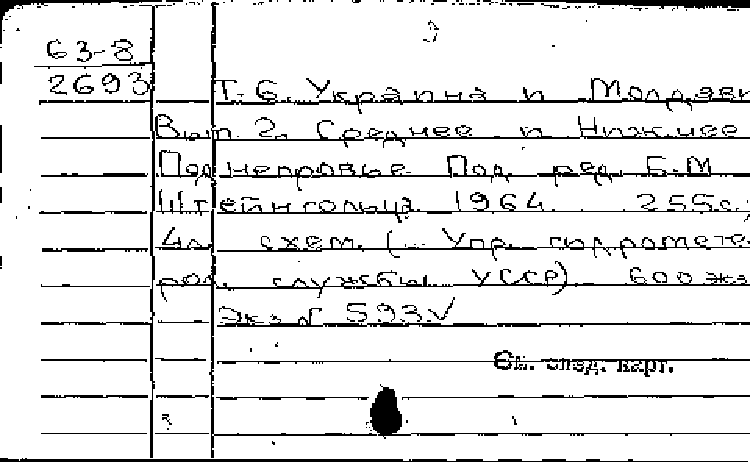 63-8
2693
Т. 6. Украина и Молдави
Вып. 2. Среднее и Нижнее
Поднепровье. Под ред. Б.М.
Штейнгольца. 1964. 255 с.,
4 л. схем. (... Упр. гидромете
рол. службы УССР) 600 экз.
Экз. № 593 √
См. след. карт.